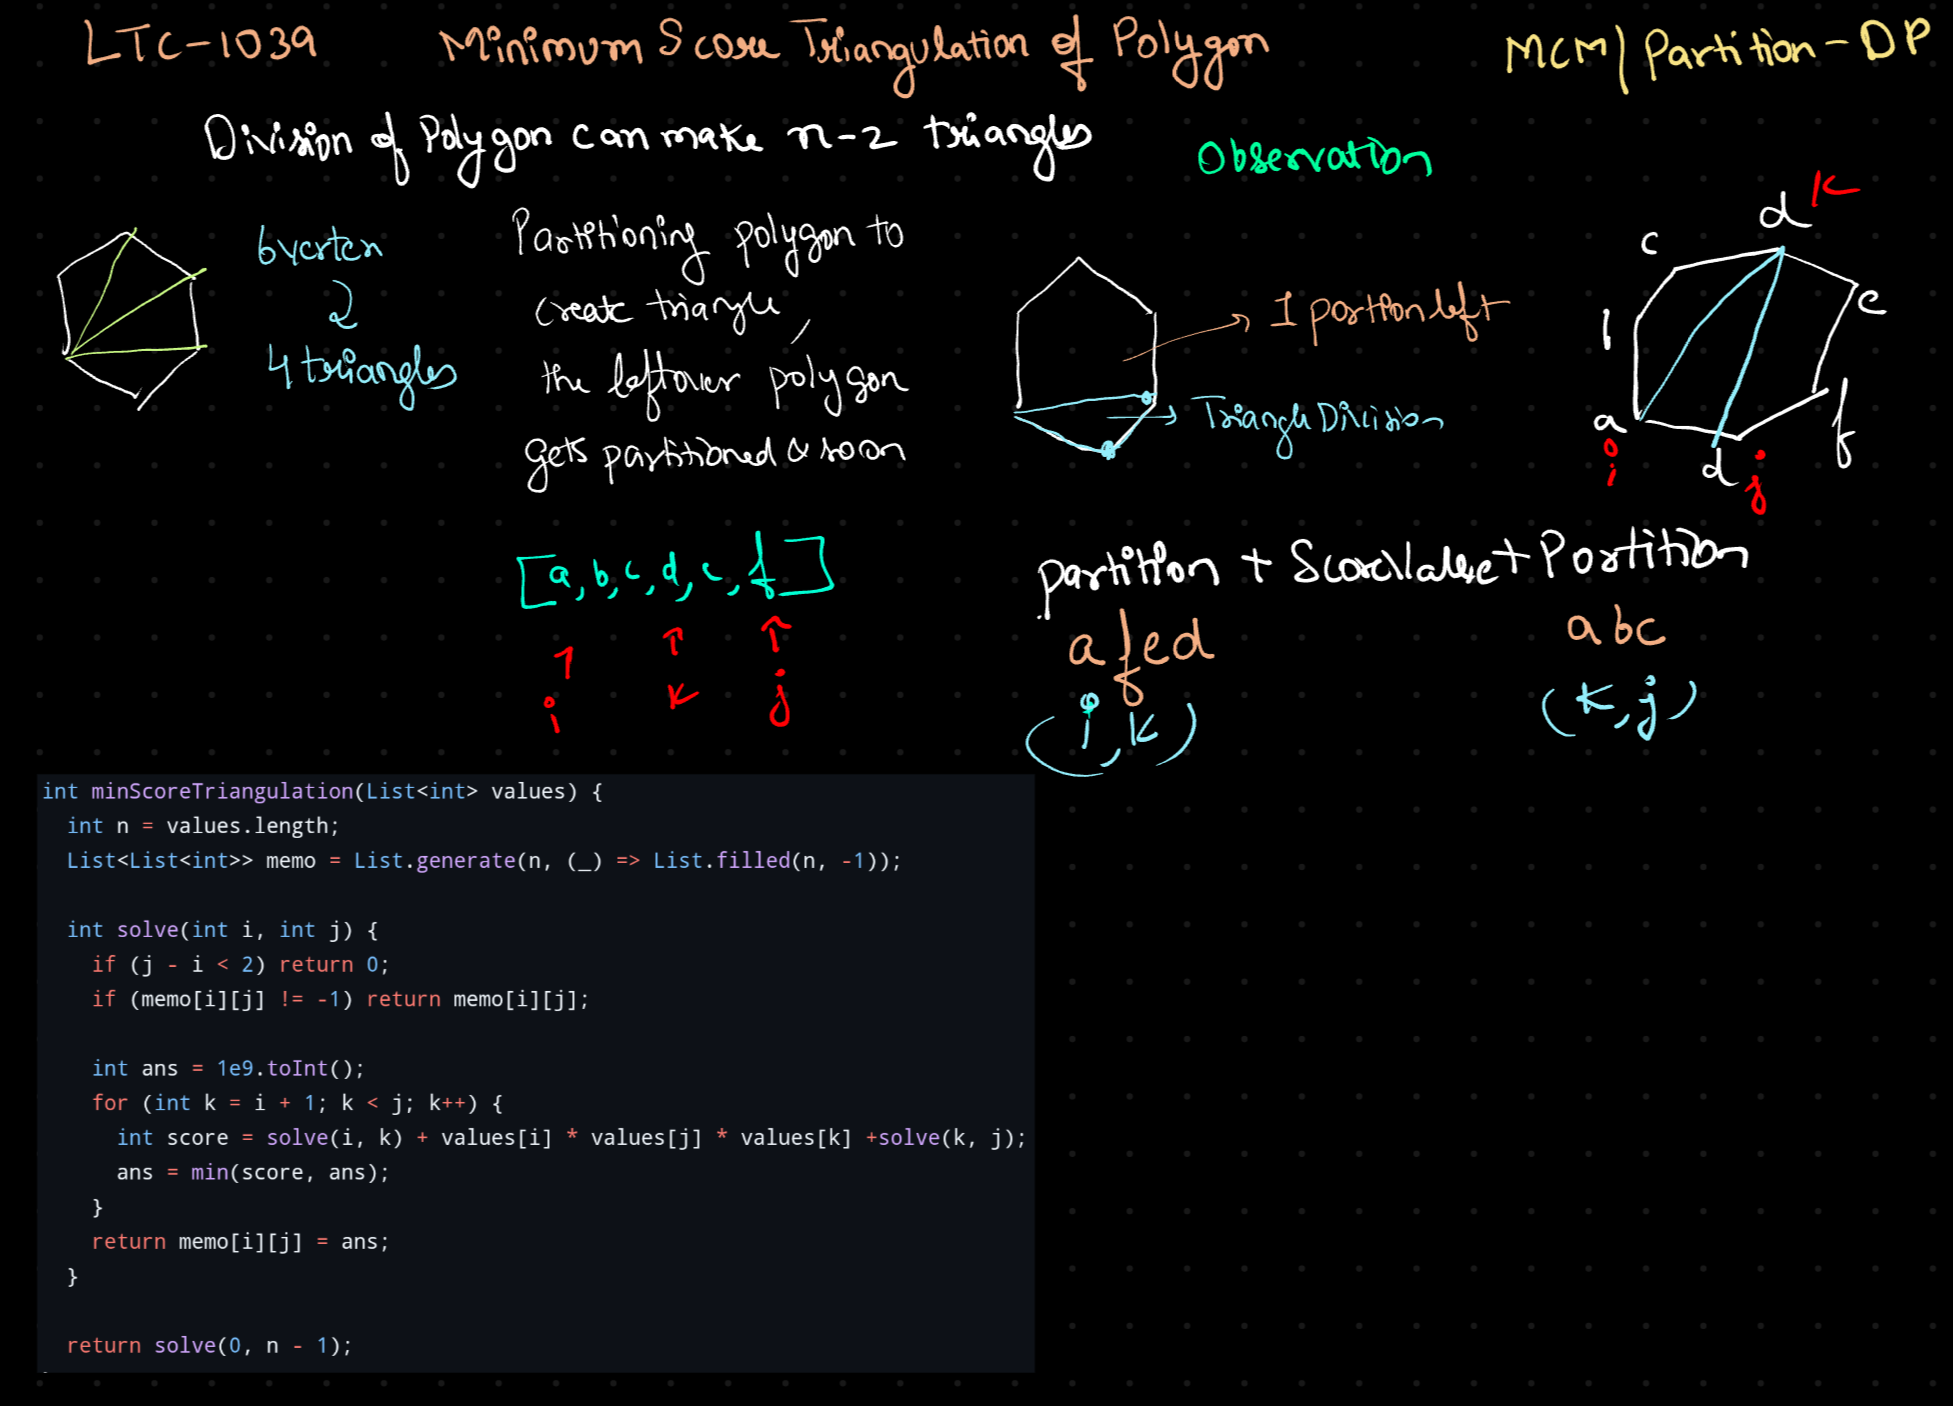 LTC-1039 Minimum Score Triangulation of Polygon MCM/Partition-DP
Division of Polygon can make n-2 triangles
Observation
6 vertex
2
4 triangles
Partitioning polygon to
create triangle,
the leftover polygon
gets partitioned & so on
1 portion left
Triangle Division
d K
c
e
b
a
f
i
d j
[a, b, c, d, e, f]
i K j
partition + + Partition
afed abc
(i, K) (K, j)
int minScoreTriangulation(List<int> values) {
int n = values.length;
List<List<int>> memo = List.generate(n, (_) => List.filled(n, -1));
int solve(int i, int j) {
if (j - i < 2) return 0;
if (memo[i][j] != -1) return memo[i][j];
int ans = 1e9.toInt();
for (int k = i + 1; k < j; k++) {
int score = solve(i, k) + values[i] * values[j] * values[k] +solve(k, j);
ans = min(score, ans);
}
return memo[i][j] = ans;
}
return solve(0, n - 1);